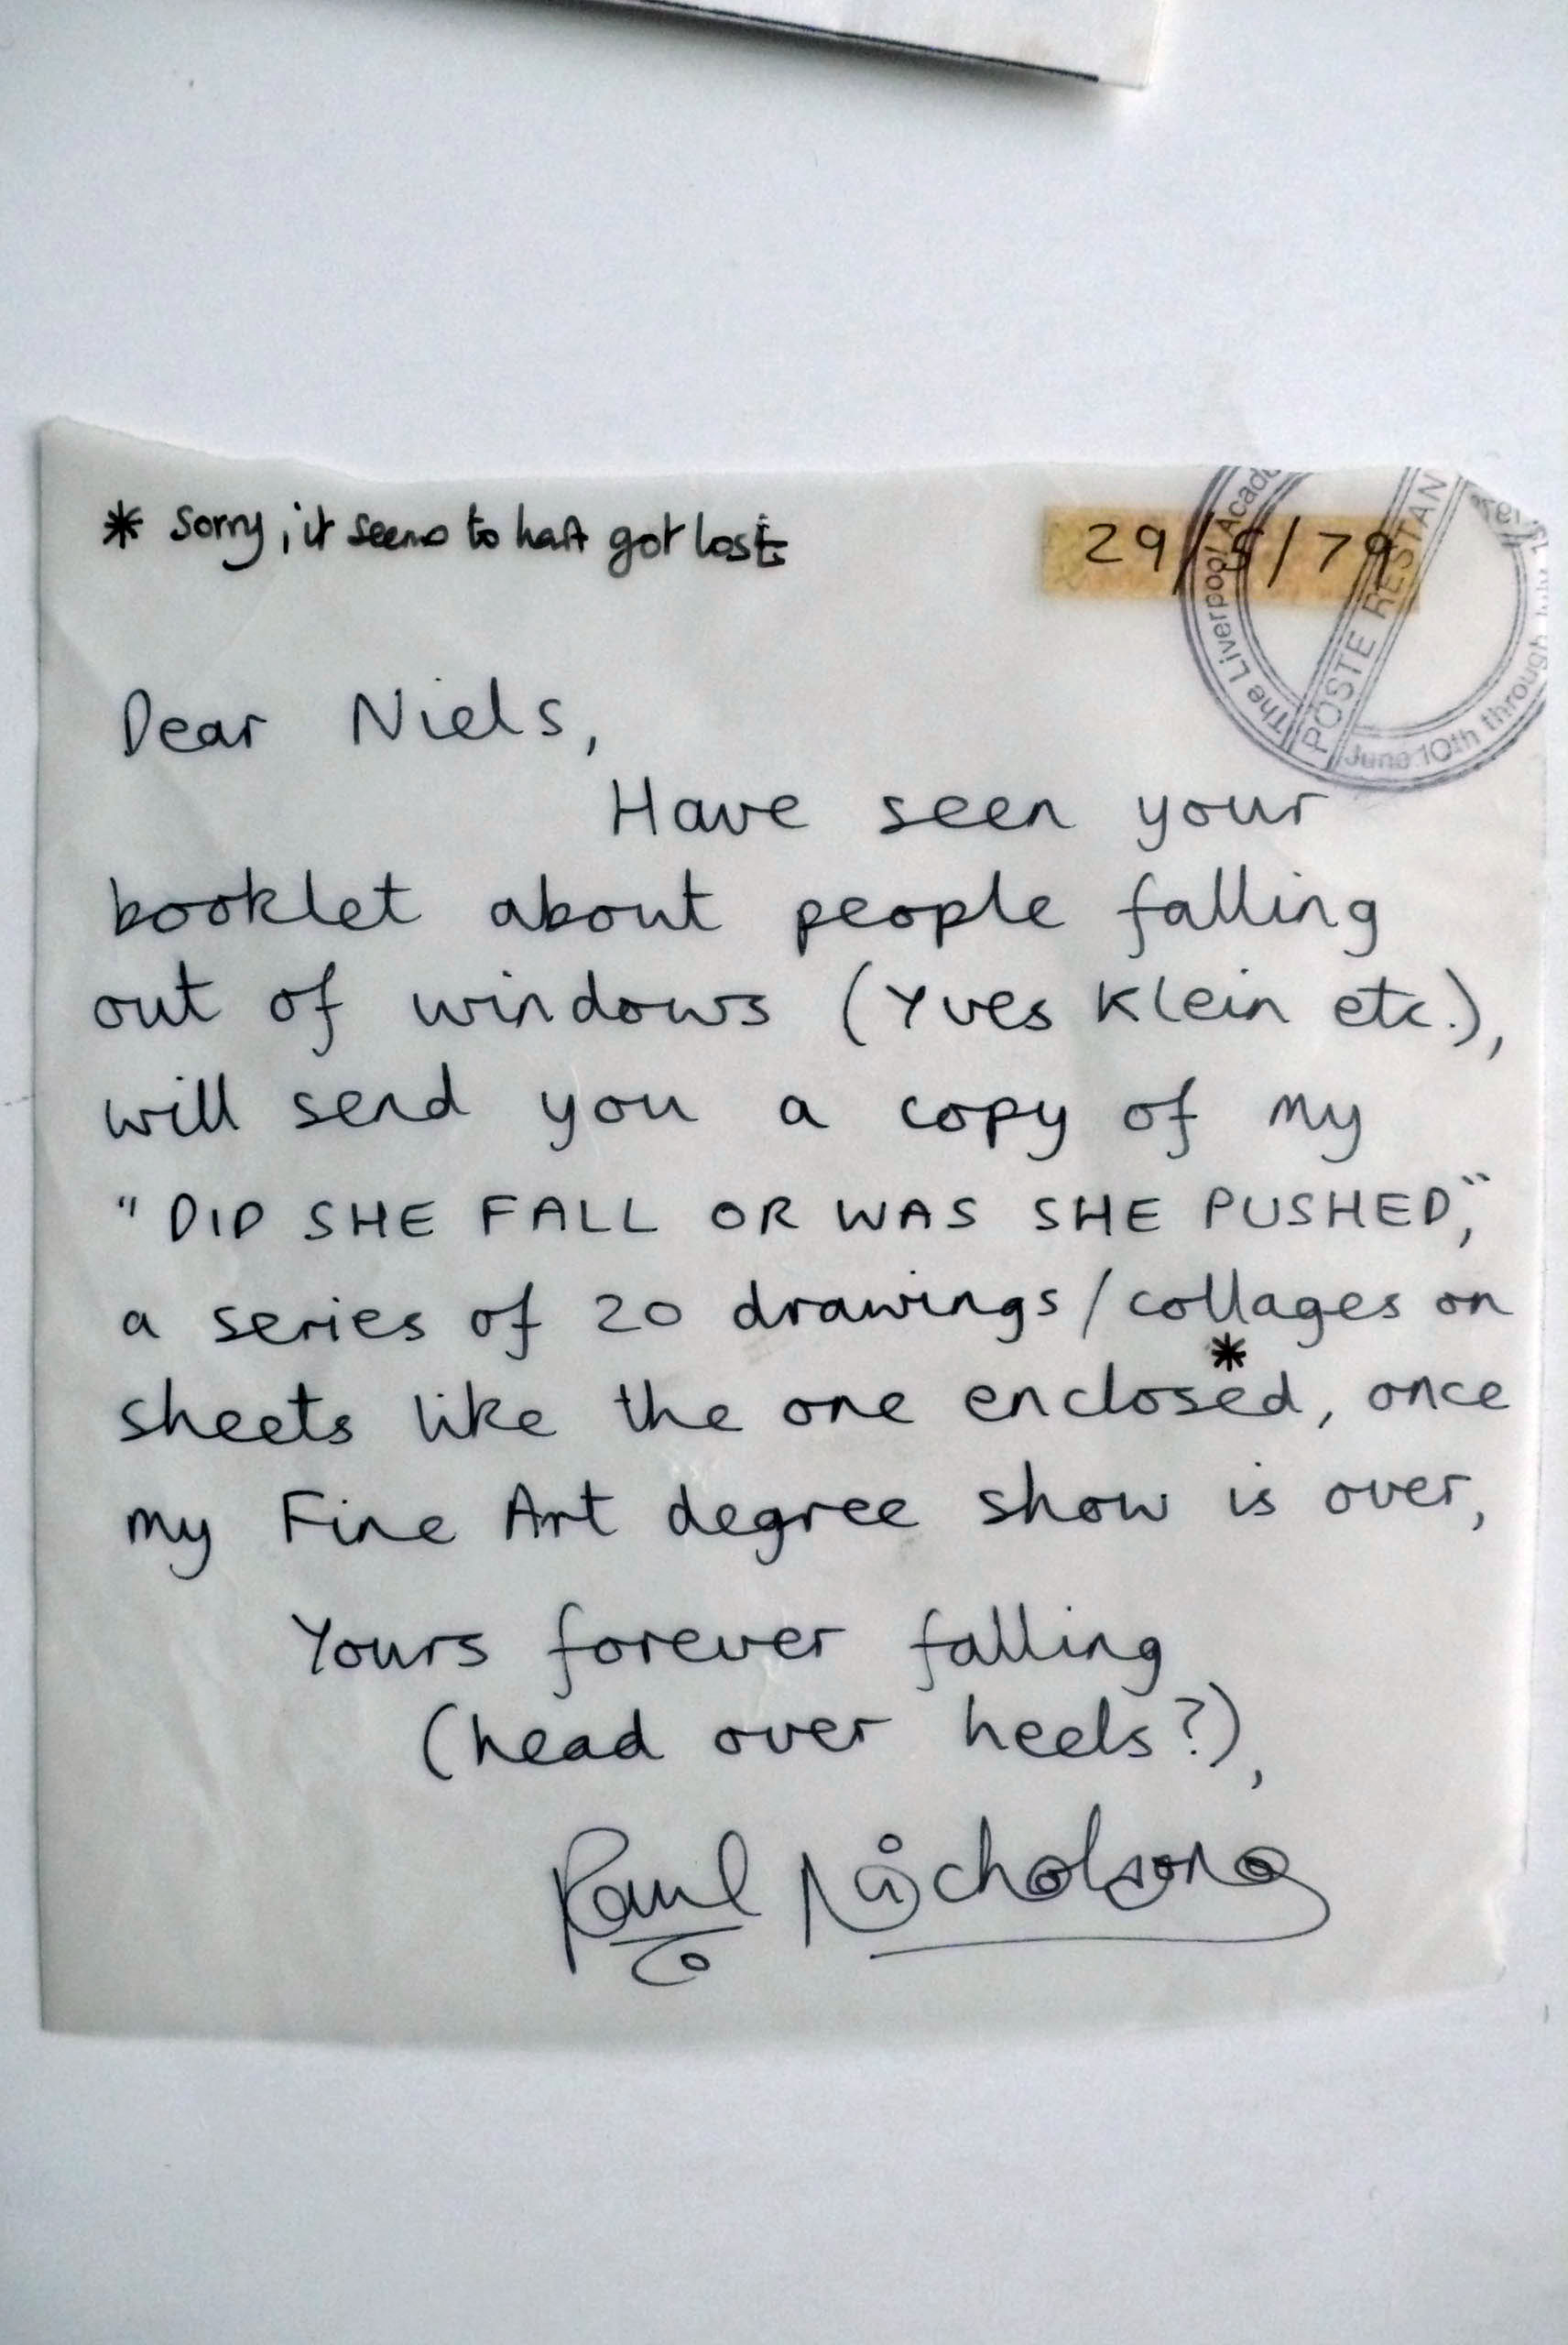 * sorry, it seems to have got lost
29/5/79
The Liverpool Acad
POSTE RESTAN
June 10th through
Dear Niels,
Have seen your
booklet about people falling
out of windows (Yves Klein etc.),
will send you a copy of my
"DID SHE FALL OR WAS SHE PUSHED",
a series of 20 drawings/collages on
sheets like the one enclosed*, once
my Fine Art degree show is over,
Yours forever falling
(head over heels?),
Paul Nicholson